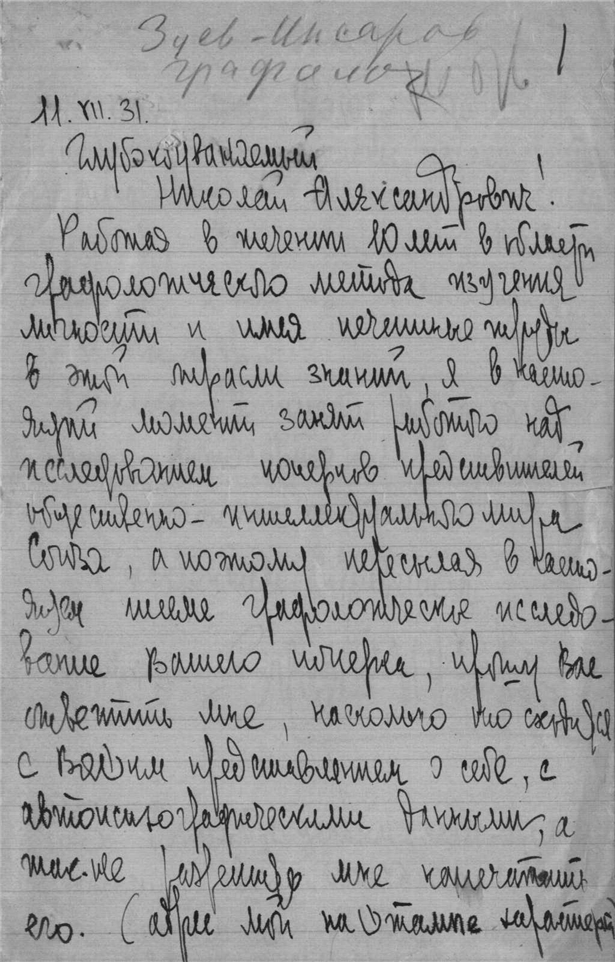 Зуев-Инсаров
графолог
1
11.VII.31.
Глубокоуважаемый
Николай Александрович!
Работая в течении 10 лет в области
графологического метода изучения
личности и имея печатные труды
в этой отрасли знаний, я в насто-
ящий момент занят работою над
исследованием почерков представителей
общественно-интеллектуального мира
Союза, а поэтому пересылая в насто-
ящем письме графологическое исследо-
вание Вашего почерка, прошу Вас
ответить мне, насколько оно сходится
с Вашим представлением о себе, с
автобиографическими данными, а
так-же разрешить мне напечатать
его. (адрес мой на штампе характери